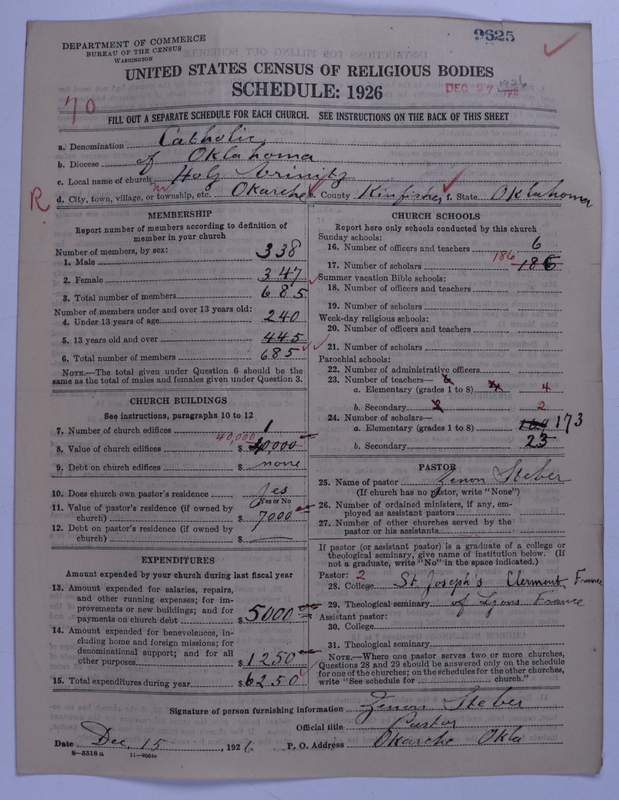 DEPARTMENT OF COMMERCE
BUREAU OF THE CENSUS
WASHINGTON
9625
UNITED STATES CENSUS OF RELIGIOUS BODIES
SCHEDULE: 1926
DEC 27 1926
70
FILL OUT A SEPARATE SCHEDULE FOR EACH CHURCH. SEE INSTRUCTIONS ON THE BACK OF THIS SHEET
a. Denomination Catholic
b. Diocese of Oklahoma
c. Local name of church Holy Trinity
R
d. City, town, village, or township, etc. Okarche e. County Kinfisher f. State Oklahoma
MEMBERSHIP
Report number of members according to definition of member in your church
Number of members, by sex:
1. Male 338
2. Female 347
3. Total number of members 685
Number of members under and over 13 years old:
4. Under 13 years of age 240
5. 13 years old and over 445
6. Total number of members 685
NOTE.—The total given under Question 6 should be the same as the total of males and females given under Question 3.
CHURCH BUILDINGS
See instructions, paragraphs 10 to 12
7. Number of church edifices 1
40,000
8. Value of church edifices $
9. Debt on church edifices $ none
10. Does church own pastor's residence yes
Yes or No
11. Value of pastor's residence (if owned by church) $ 7000
12. Debt on pastor's residence (if owned by church) $
EXPENDITURES
Amount expended by your church during last fiscal year
13. Amount expended for salaries, repairs, and other running expenses; for improvements or new buildings; and for payments on church debt $ 5000
14. Amount expended for benevolences, including home and foreign missions; for denominational support; and for all other purposes $ 1250
15. Total expenditures during year $ 6250
CHURCH SCHOOLS
Report here only schools conducted by this church
Sunday schools:
16. Number of officers and teachers 6
17. Number of scholars 186 186
Summer vacation Bible schools:
18. Number of officers and teachers
19. Number of scholars
Week-day religious schools:
20. Number of officers and teachers
21. Number of scholars
Parochial schools:
22. Number of administrative officers
23. Number of teachers—
a. Elementary (grades 1 to 8) 4
b. Secondary 2 2
24. Number of scholars—
a. Elementary (grades 1 to 8) 173
b. Secondary 23
PASTOR
25. Name of pastor Zenon Steber
(If church has no pastor, write "None")
26. Number of ordained ministers, if any, employed as assistant pastors
27. Number of other churches served by the pastor or his assistants
If pastor (or assistant pastor) is a graduate of a college or theological seminary, give name of institution below. (If not a graduate, write "No" in the space indicated.)
Pastor: 2
28. College St. Joseph's Clermont, France
29. Theological seminary of Lyons France
Assistant pastor:
30. College
31. Theological seminary
NOTE.—Where one pastor serves two or more churches, Questions 28 and 29 should be answered only on the schedule for one of the churches; on the schedules for the other churches, write "See schedule for church."
Signature of person furnishing information Zenon Steber
Official title Pastor
Date Dec, 15, 1926 P. O. Address Okarche Okla
8—5318a 11—9054a